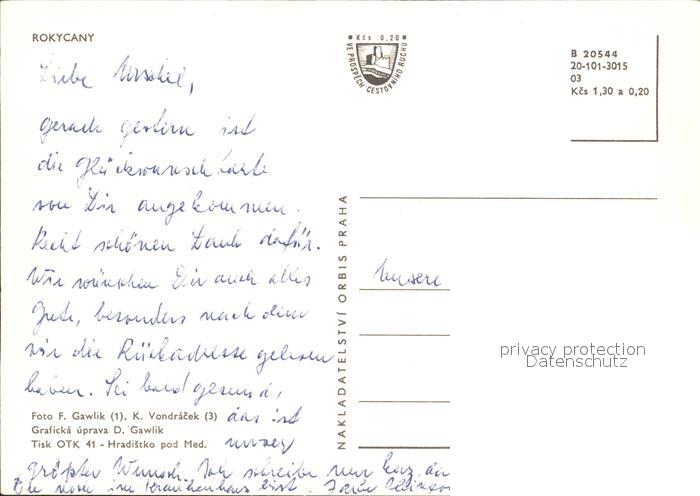 ROKYCANY
Kčs 0,20
VE PROSPĚCH CESTOVNÍHO RUCHU
B 20544
20-101-3015
03
Kčs 1,30 a 0,20
Liebe Urschel,
gerade gestern ist
die Glückwunschkarte
von Dir angekommen.
Recht schönen Dank dafür.
Wir wünschen Dir auch alles
Gute, besonders nach dem
wir die Rückadresse gelesen
haben. Sei bald gesund,
das ist
unser
größter Wunsch. Ich schreibe nur kurz, da
Du noch im Krankenhaus bist.
Unsere
NAKLADATELSTVÍ ORBIS PRAHA
privacy protection
Datenschutz
Foto F. Gawlik (1), K. Vondráček (3)
Grafická úprava D. Gawlik
Tisk OTK 41 - Hradištko pod Med.